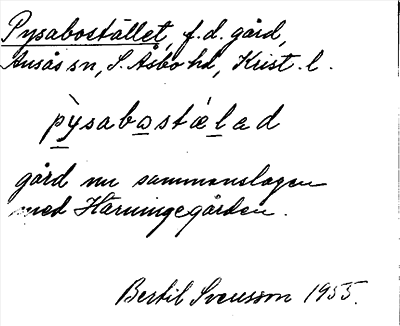 Pysabostället, f.d. gård,
Ausås sn, S. Åsbo hd, Krist. l.
pỳsabɷstǽlad
gård nu sammanslagen
med Härningegården.
Bertil Svensson 1955.